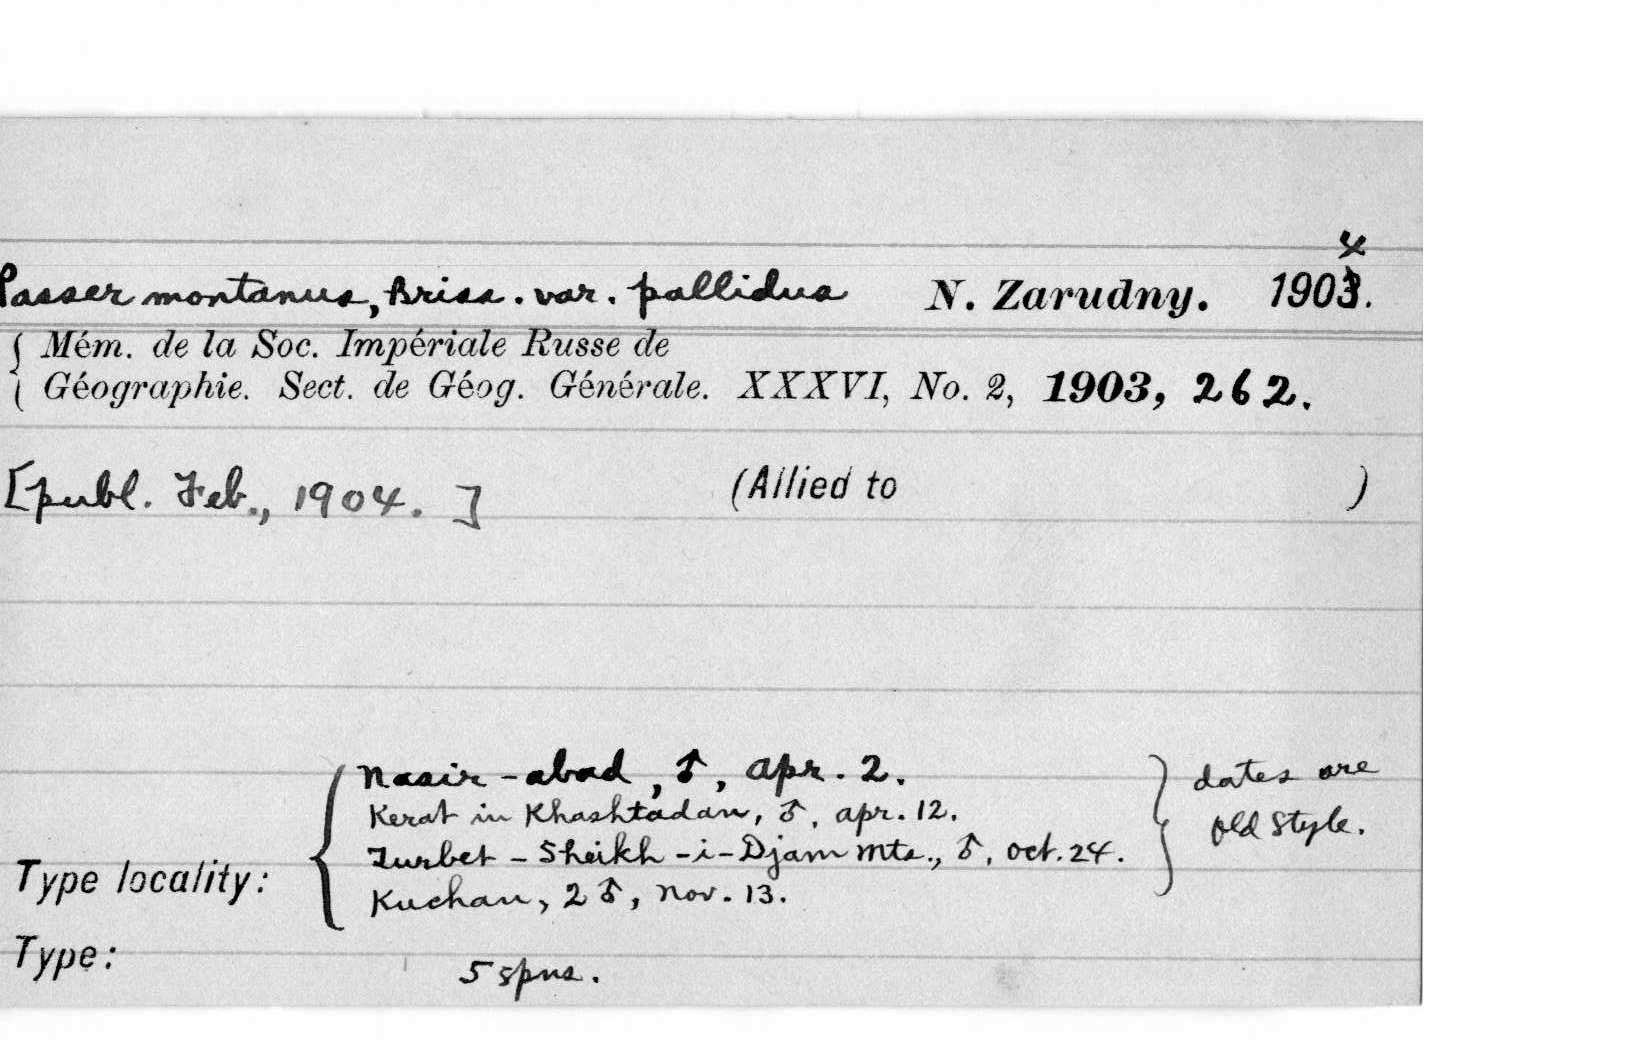 4
Passer montanus, Briss. var. pallidus N. Zarudny. 1903.
Mém. de la Soc. Impériale Russe de
Géographie. Sect. de Géog. Générale. XXXVI, No. 2, 1903, 262.
[publ. Feb., 1904. ] (Allied to )
Nasir-abad, ♂, Apr. 2.
Kerat in Khashtadan, ♂, Apr. 12.
Turbet-Sheikh-i-Djam Mts., ♂, Oct. 24.
Kuchan, 2 ♂, Nov. 13.
dates are
Old Style.
Type locality:
Type: 5 spns.